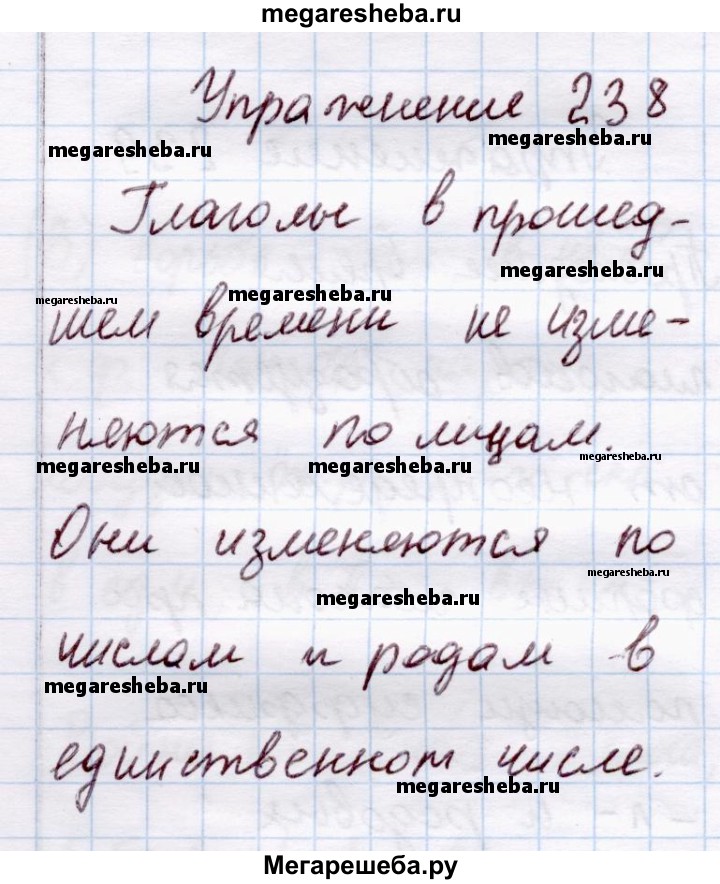 megaresheba.ru
Упражнение 238
megaresheba.ru
megaresheba.ru
Глаголы в прошед-
megaresheba.ru
megaresheba.ru
megaresheba.ru
шем времени не изме-
няются по лицам.
megaresheba.ru
megaresheba.ru
megaresheba.ru
Они изменяются по
megaresheba.ru
megaresheba.ru
числам и родам в
megaresheba.ru
единственном числе.
megaresheba.ru
Мегарешеба.ру